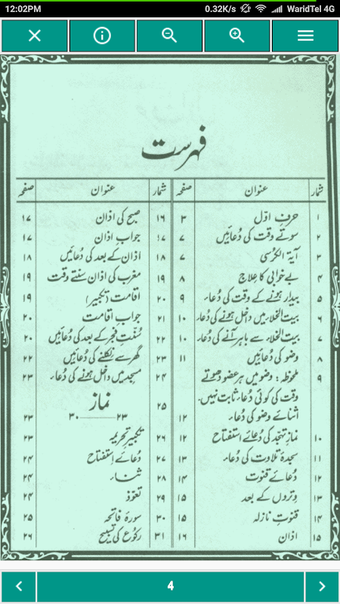 12:02PM 0.32K/s WaridTel 4G
فہرست
شمار عنوان صفحہ
۱ حرفِ اوّل ۳
۲ سوتے وقت کی دُعائیں ۷
۳ آیۃ الکرسی ۷
۴ بے خوابی کا علاج ۸
۵ بیدار ہونے کے وقت کی دُعاء ۹
۶ بیت الخلاء میں داخل ہونے کی دُعاء ۱۰
۷ بیت الخلاء سے باہر آنے کی دُعاء ۱۰
۸ وضو کی دُعائیں ۱۱
۹ ملحوظہ: وضو میں ہر عضو دھوتے
وقت کی کوئی دُعاء ثابت نہیں۔
اثنائے وضو کی دُعاء ۱۲
۱۰ نمازِ تہجّد کی دُعائے استفتاح ۱۲
۱۱ سجدۂ تلاوت کی دُعاء ۱۳
۱۲ دُعائے قنوت ۱۴
۱۳ وتروں کے بعد ۱۵
۱۴ قنوتِ نازلہ ۱۵
۱۵ اذان ۱۶
شمار عنوان صفحہ
۱۶ صبح کی اذان ۱۷
۱۷ جواب اذان ۱۷
۱۸ اذان کے بعد کی دُعائیں ۱۸
۱۹ مغرب کی اذان سنتے وقت ۱۹
۲۰ اقامت (تکبیر) ۱۹
۲۱ جواب اقامت ۲۰
۲۲ سُنّتِ فجر کے بعد کی دُعائیں ۲۰
۲۳ گھر سے نکلنے کی دُعائیں ۲۲
۲۴ مسجد میں داخل ہونے کی دُعاء ۲۳
۲۵ نماز
۲۳ ۳۰ ۲۳
۲۶ تکبیر تحریمہ ۲۳
۲۷ دُعائے استفتاح ۲۴
۲۸ ثناء ۲۴
۲۹ تعوّذ ۲۴
۳۰ سورۂ فاتحہ ۲۵
۳۱ رکوع کی تسبیح ۲۶
4